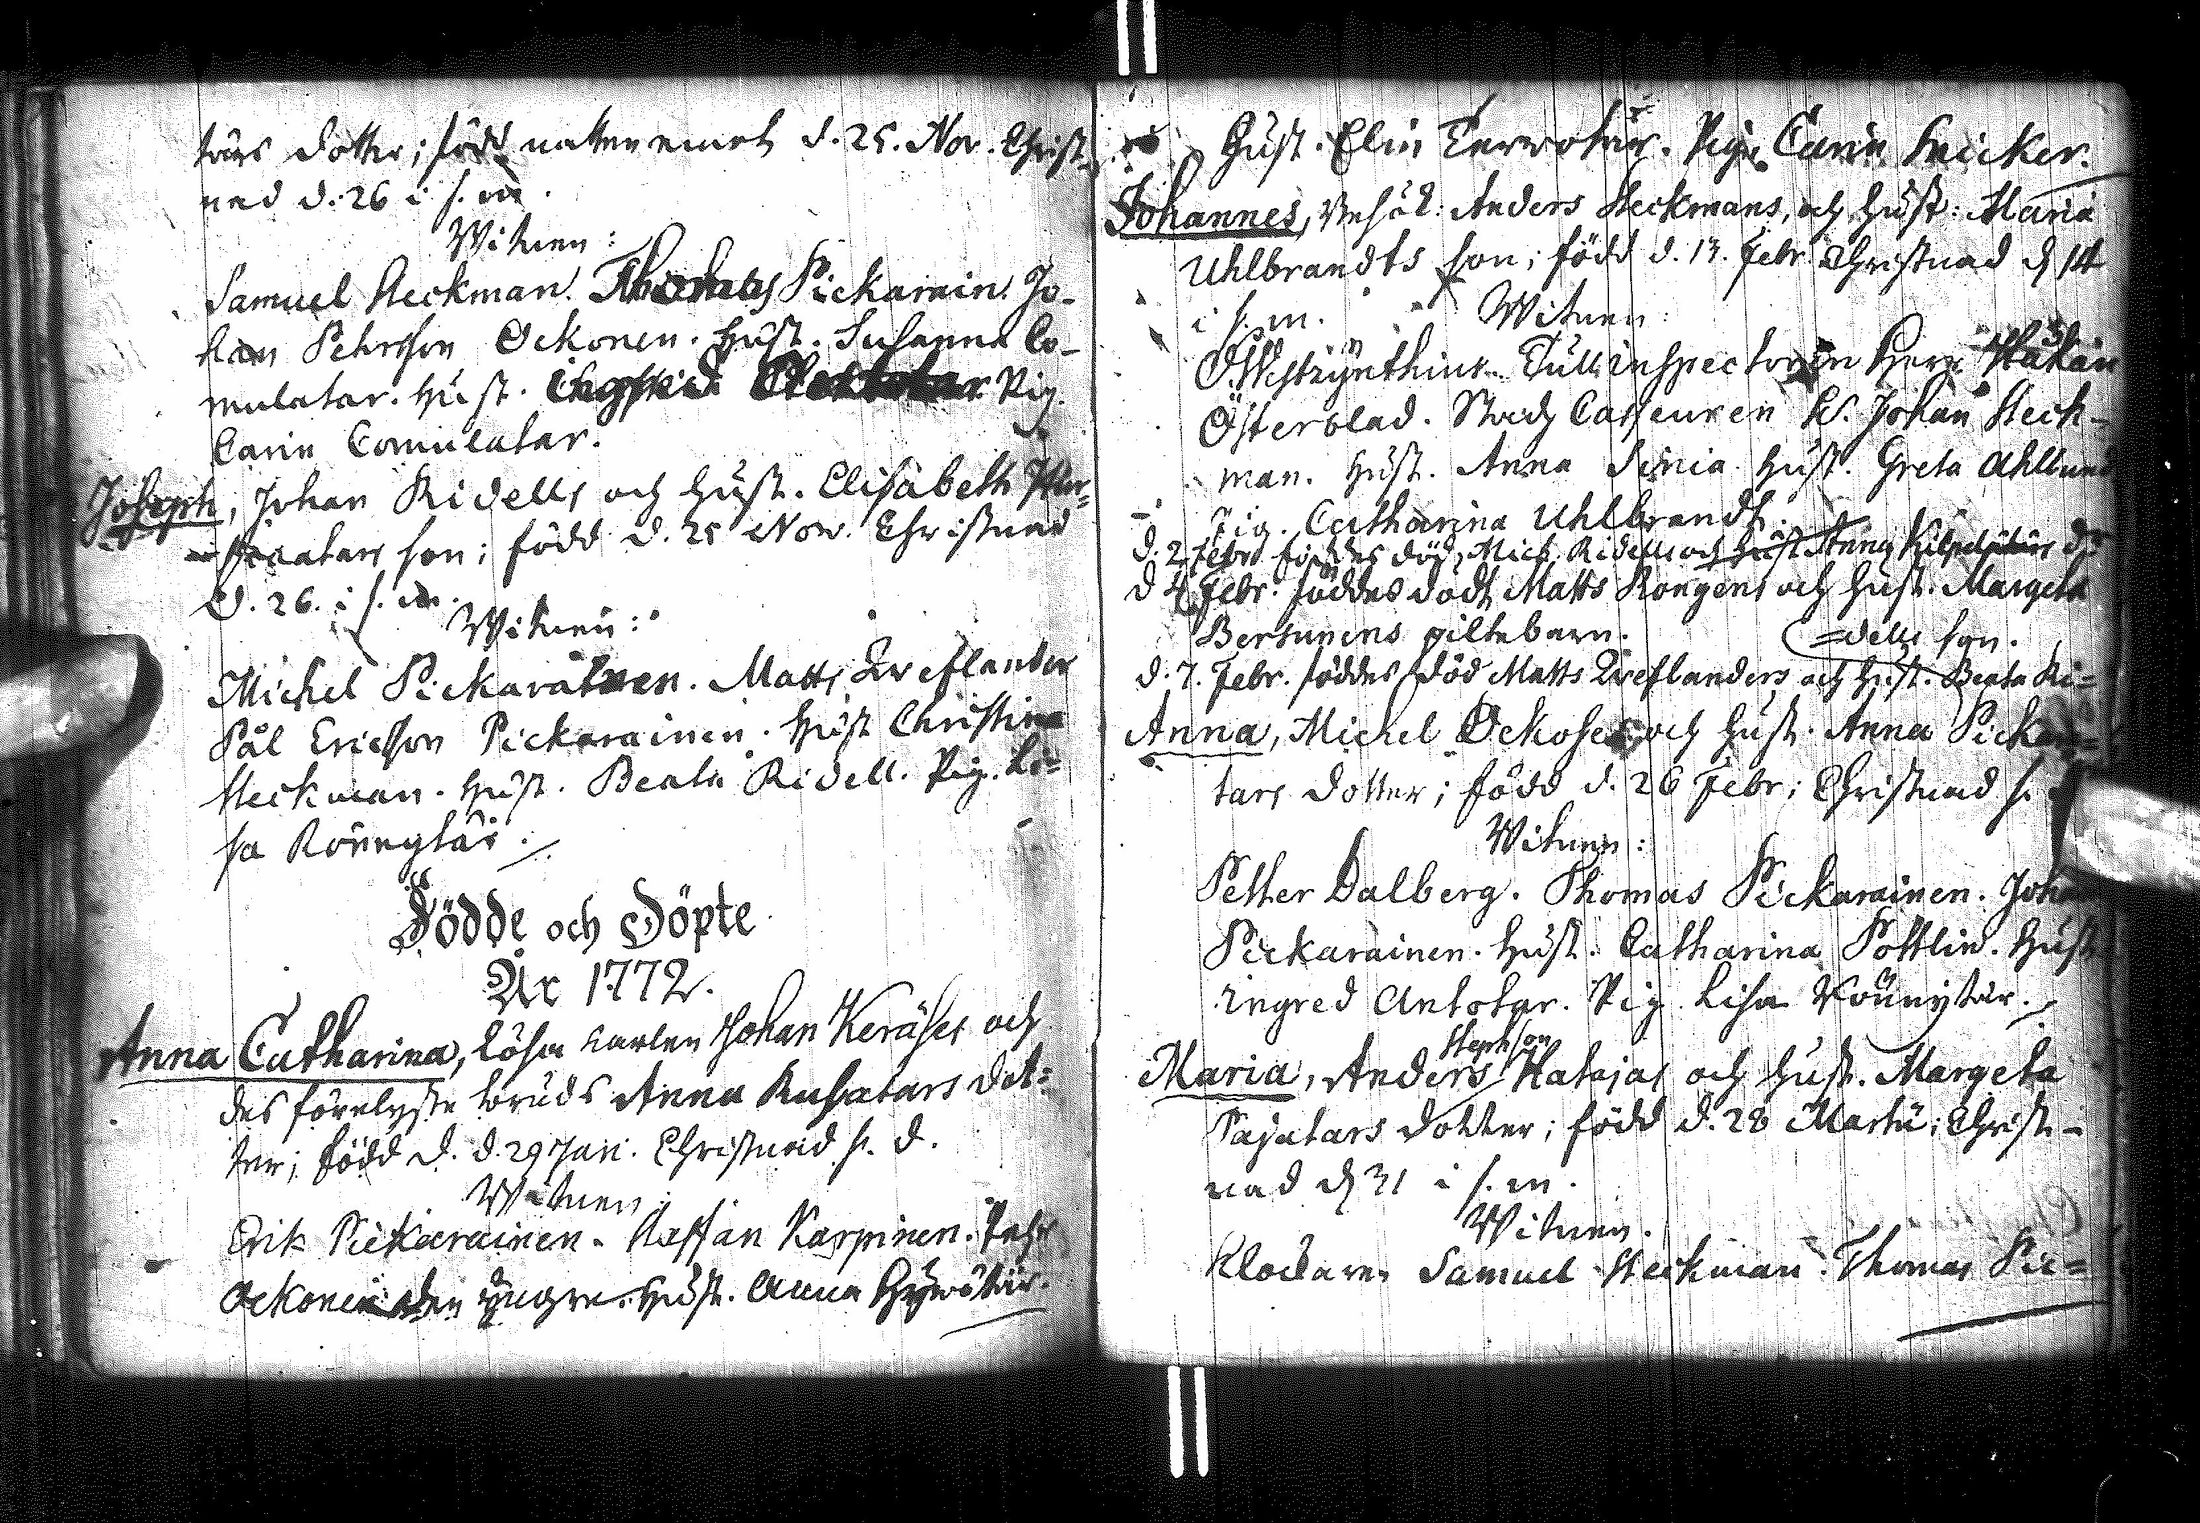 tars dotter; född natten emot d. 25. Nov. Christ-
nad d. 26 i s. m.
Witnen:
Samuel Heckman. Thomas Pickarain. Jo-
han Pehrsson Ockonen. Hust. Susanna Co-
mulatar. Hust. Pig.
Carin Comulatar.
Joseph, Johan Ridells och Hust. Elisabeth
son; född d. 25 Nov. Christnad
d. 26. i s. m.
Witnen:
Michel Pickarainen. Matts Liweflander
Pål Ericsson Pickarainen. Hust Christina
Heckman. Hust. Beata Ridell. Pig. Li-
sa
Födde och Döpte
År 1772.
Anna Catharina, Lösa karlen Johan Keräses och
des förelofte bruds Anna dot-
ter; född d. d. 29 Jan. Christnad s. d.
Witnen:
Erik Pickarainen. Staffan Karpinen. Pehr
Ockonen den yngre. Hust. Anna
Hust. Elin Terwotar. Pig. Carin Snicker.
Johannes, Anders Heckmans, och Hust: Maria
Uhlbrandts son; född d. 13. Febr. Christnad d 14
i s. m. Witnen:
Tull inspectoren Herr
Österblad. Stads Casseuren H. Johan Heck-
man. Hust. Anna Hust. Greta
Pig. Catharina Uhlbrandt.
d. 2 Febr. föddes död, Mich. Ridells och Hust Anna
d 4 Febr. föddes dödt Matts Rongens och Hust. Margeta
giltebarn. =dells son.
d. 7. Febr. föddes död Matts Liweflanders och Hust. Beata Ri=
Anna, Michel Ockoses och Hust. Anna Pickara=
tars dotter; född d. 26 Febr; Christnad s.
Witnen:
Petter Dalberg. Thomas Pickarainen. Johan
Pickarainen. Hust. Catharina Pottlin. Hust
Ingred Antotar. Pig Lisa
Stephson
Maria, Anders Hatajas och Hust. Margeta
Pajatars dotter; född d. 28 Martii; Christ-
nad d 31 i s. m.
Witnen.
Klockaren Samuel Heckman. Thomas Pic=